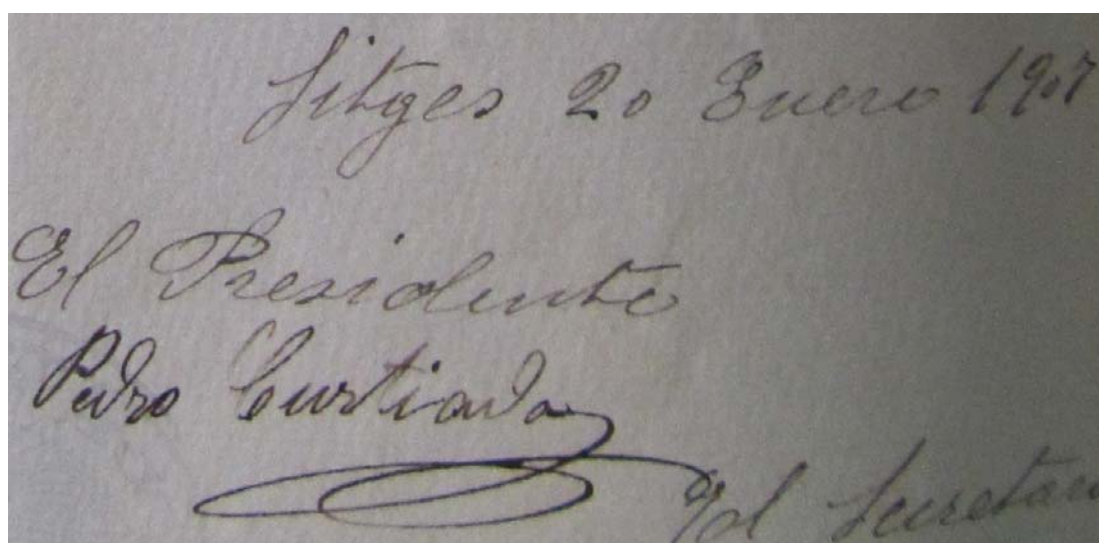 Sitges 20 Enero 1907
El Presidente
Pedro Curtiada
El Secretari